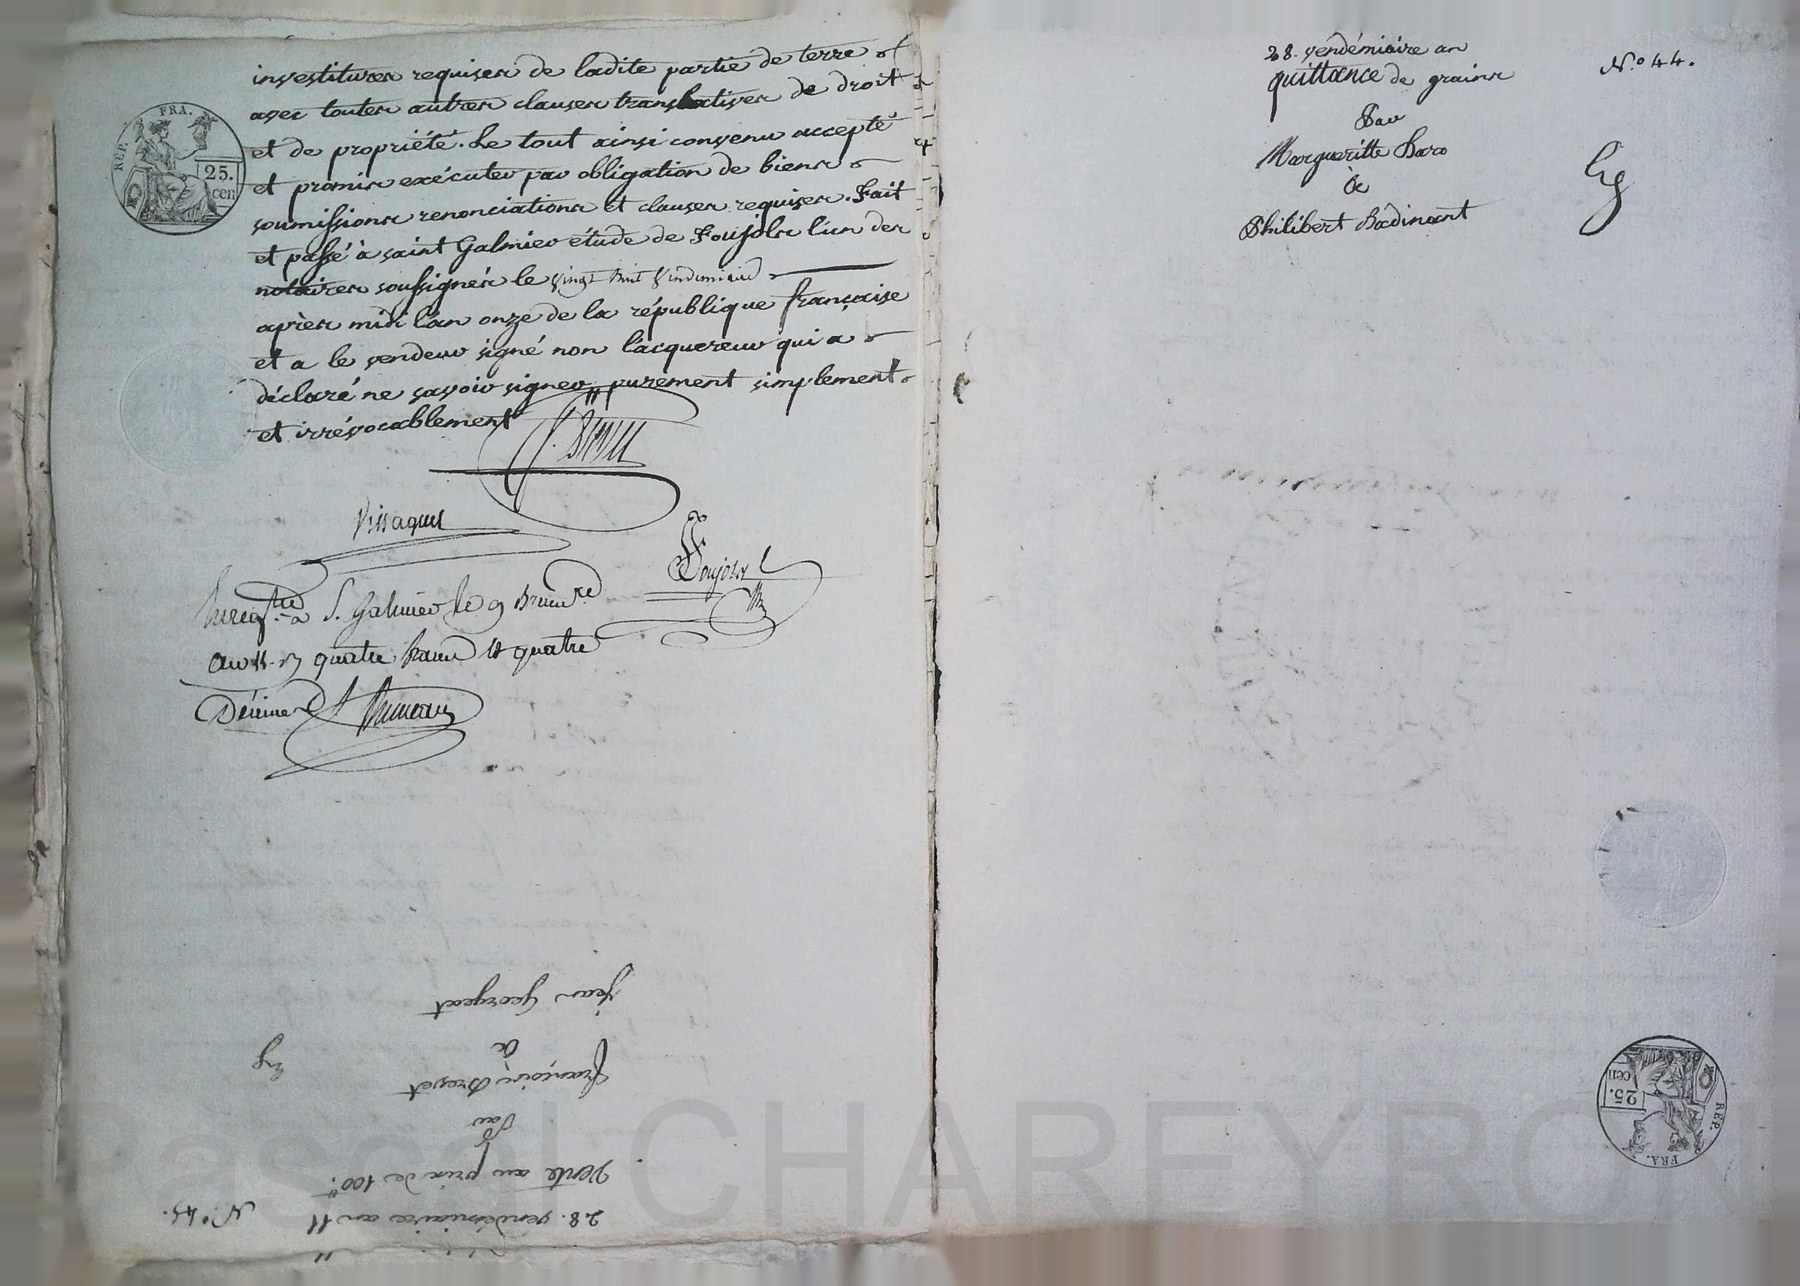 investitures requises de ladite partie de terre
avec toutes autres clauses translatives de droit
et de propriété. Le tout ainsi convenu accepté
et promis exécuter par obligation de biens
soumissions renonciations et clauses requises. Fait
et passé à saint Galmier étude de Foujols l'un des
notaires soussignés le vingt huit vendemiaire
après midi l'an onze de la république française
et a le vendeur signé non l'acquereur qui a
déclaré ne savoir signer purement simplement
et irrévocablement
Vissaguet
Foujols
Enregtré à S. Galmier le 9 Brumre
an 11. R quatre francs quatre
Décimes
28. vendémiaire an 11
N.o 45.
Vente au prix de 100.tt
Par
françois Brevet
à
jean Georjeat
28. vendémiaire an
N.o 44.
quittance de grains
Par
Margueritte Baro
à
Philibert Badinant
REP. FRA.
25.
cen
REP. FRA.
25.
cen
Pascal CHAREYRON